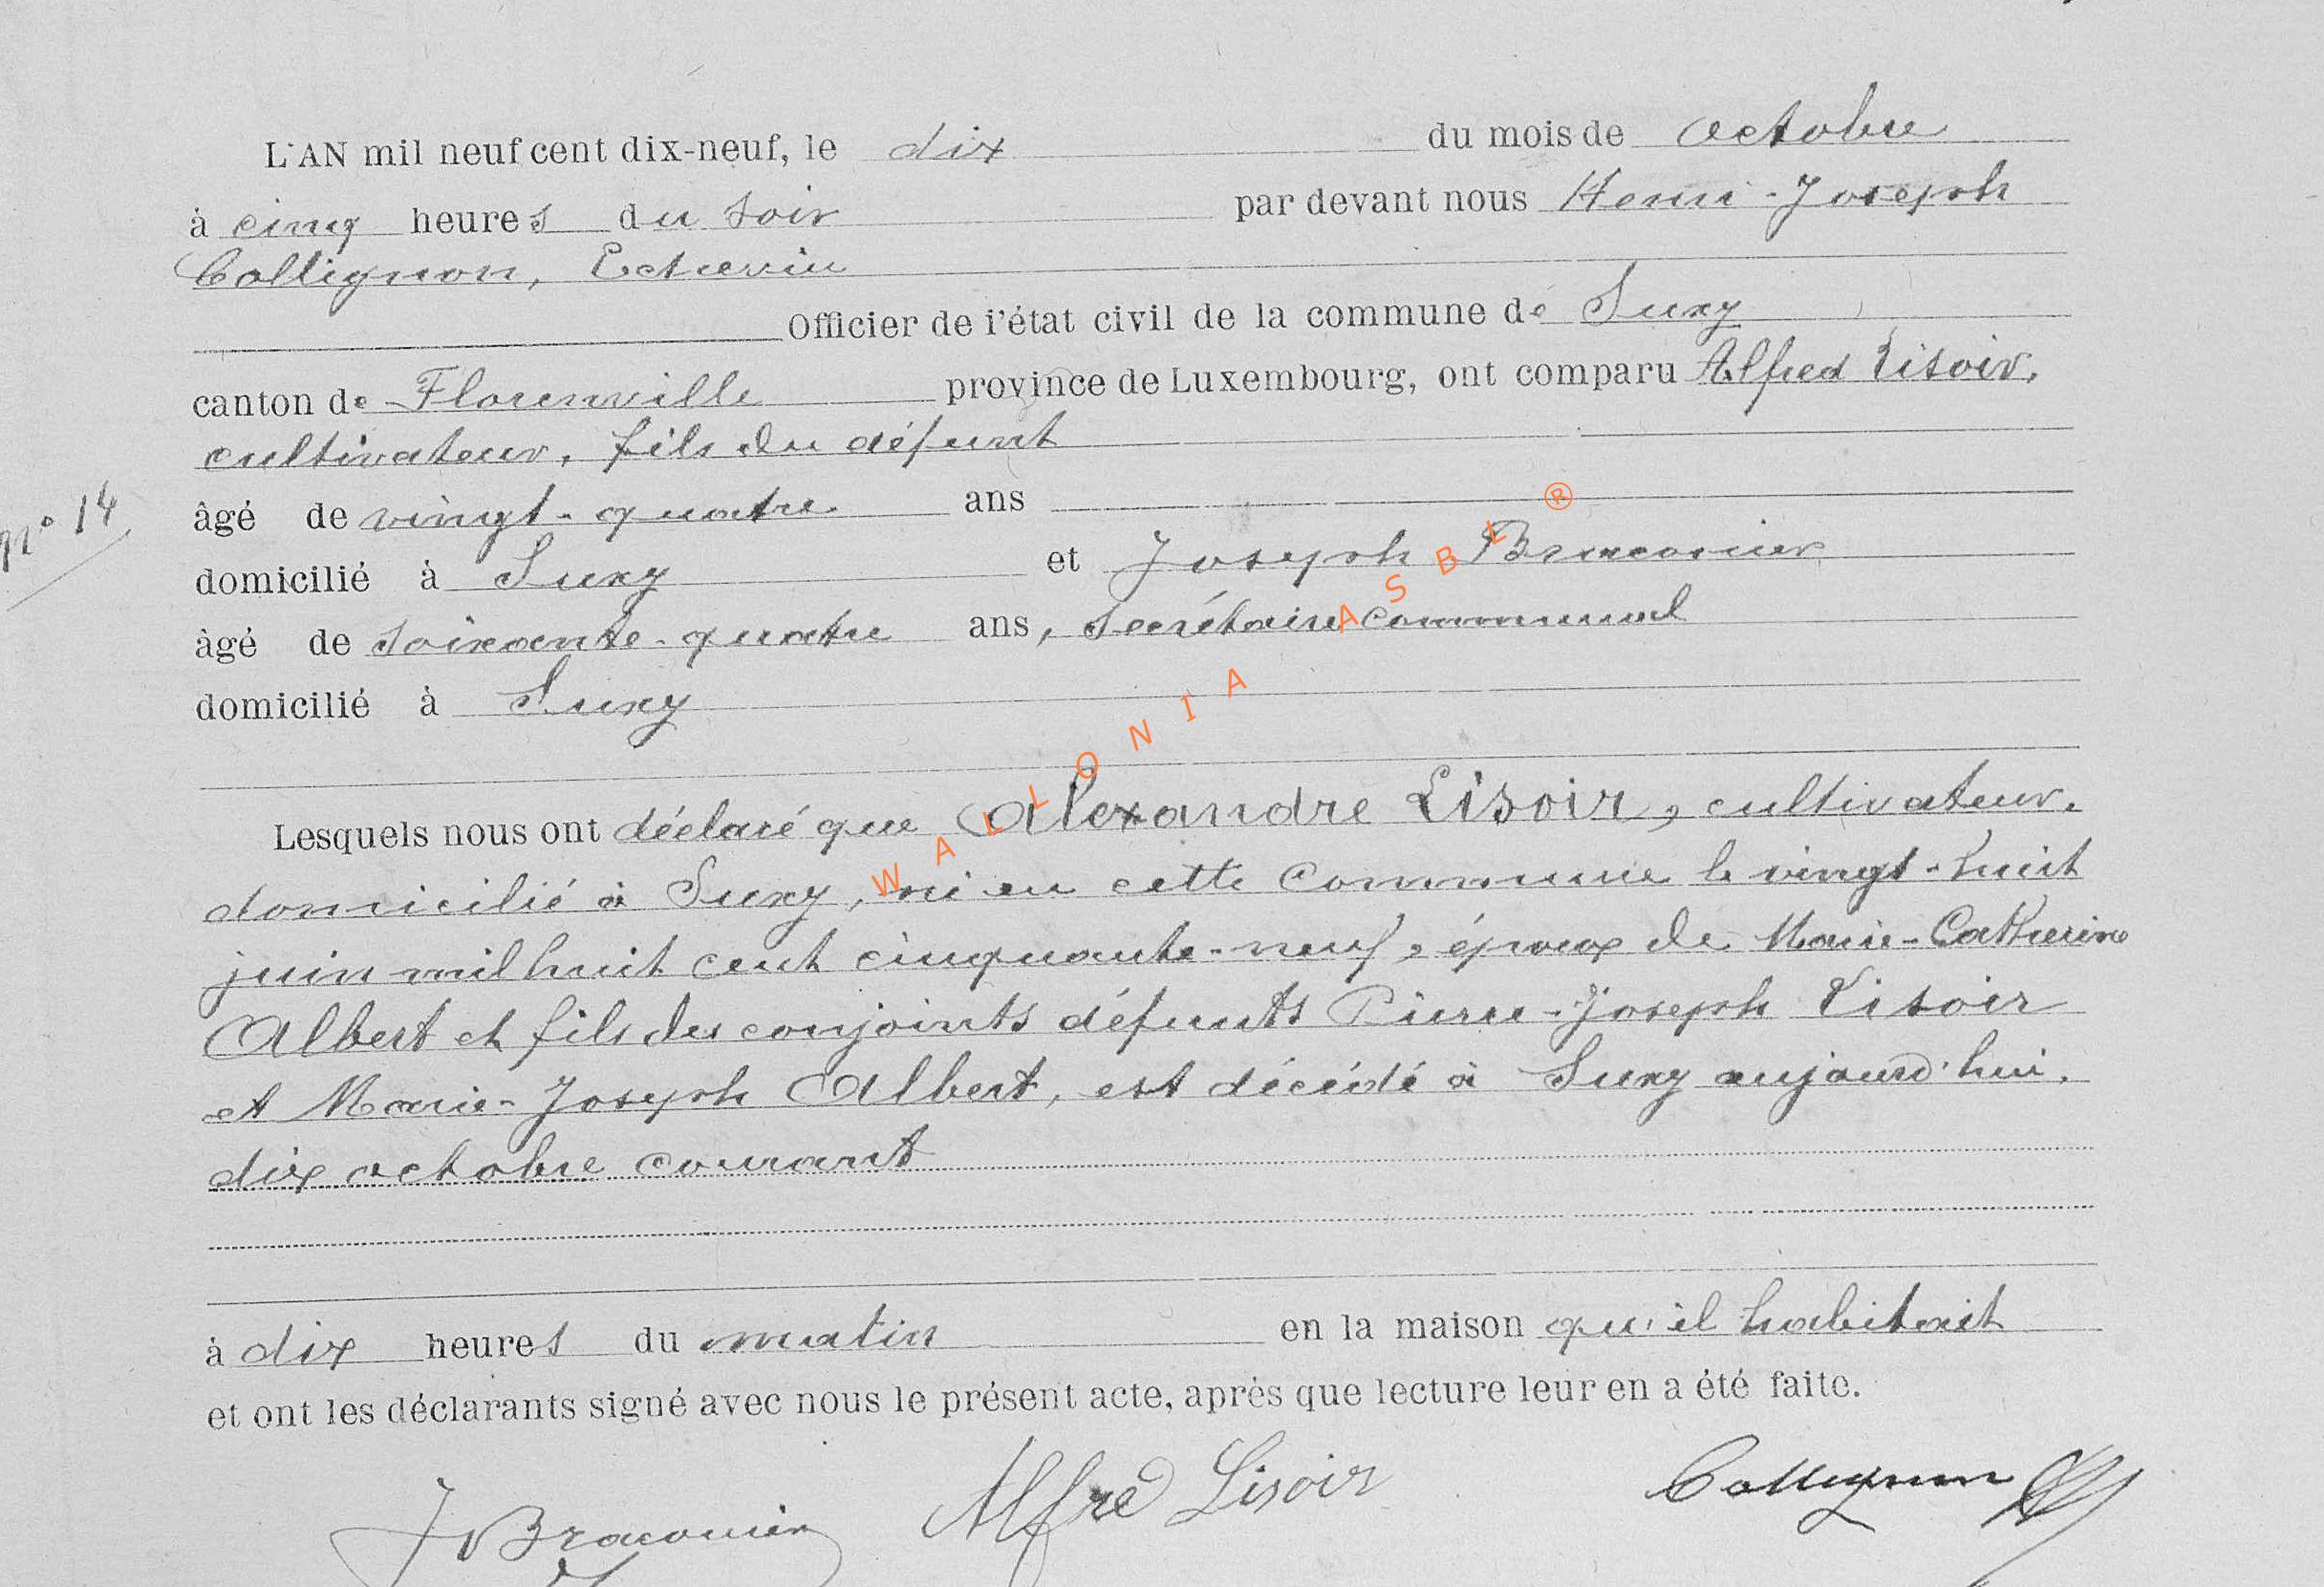 L'AN mil neuf cent dix-neuf, le dix du mois de Octobre
à cinq heures du soir par devant nous Henri-Joseph
Collignon, Echevin
Officier de l'état civil de la commune de Suxy
canton de Florenville province de Luxembourg, ont comparu Alfred Lisoir,
cultivateur, fils du défunt
âgé de vingt-quatre ans
nº 14
domicilié à Suxy et Joseph Braconier
âgé de soixante-quatre ans, secrétaire communal
domicilié à Suxy
Lesquels nous ont déclaré que Alexandre Lisoir, cultivateur,
domicilié à Suxy, né en cette commune le vingt-huit
juin mil huit cent cinquante-neuf, époux de Marie-Catherine
Albert et fils des conjoints défunts Pierre-Joseph Lisoir
et Marie-Joseph Albert, est décédé à Suxy aujourd'hui,
dix octobre courant
à dix heures du matin en la maison qu'il habitait
et ont les déclarants signé avec nous le présent acte, après que lecture leur en a été faite.
J Braconier Alfred Lisoir Collignon
WALLONIA ASBL ®